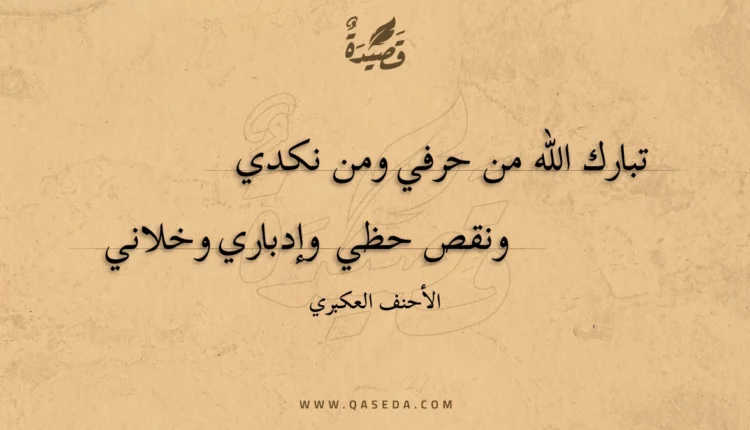 قَصِيْدَةٌ
تبارك الله من حرفي ومن نكدي
ونقص حظي وإدباري وخلاني
الأحنف العكبري
WWW.QASEDA.COM